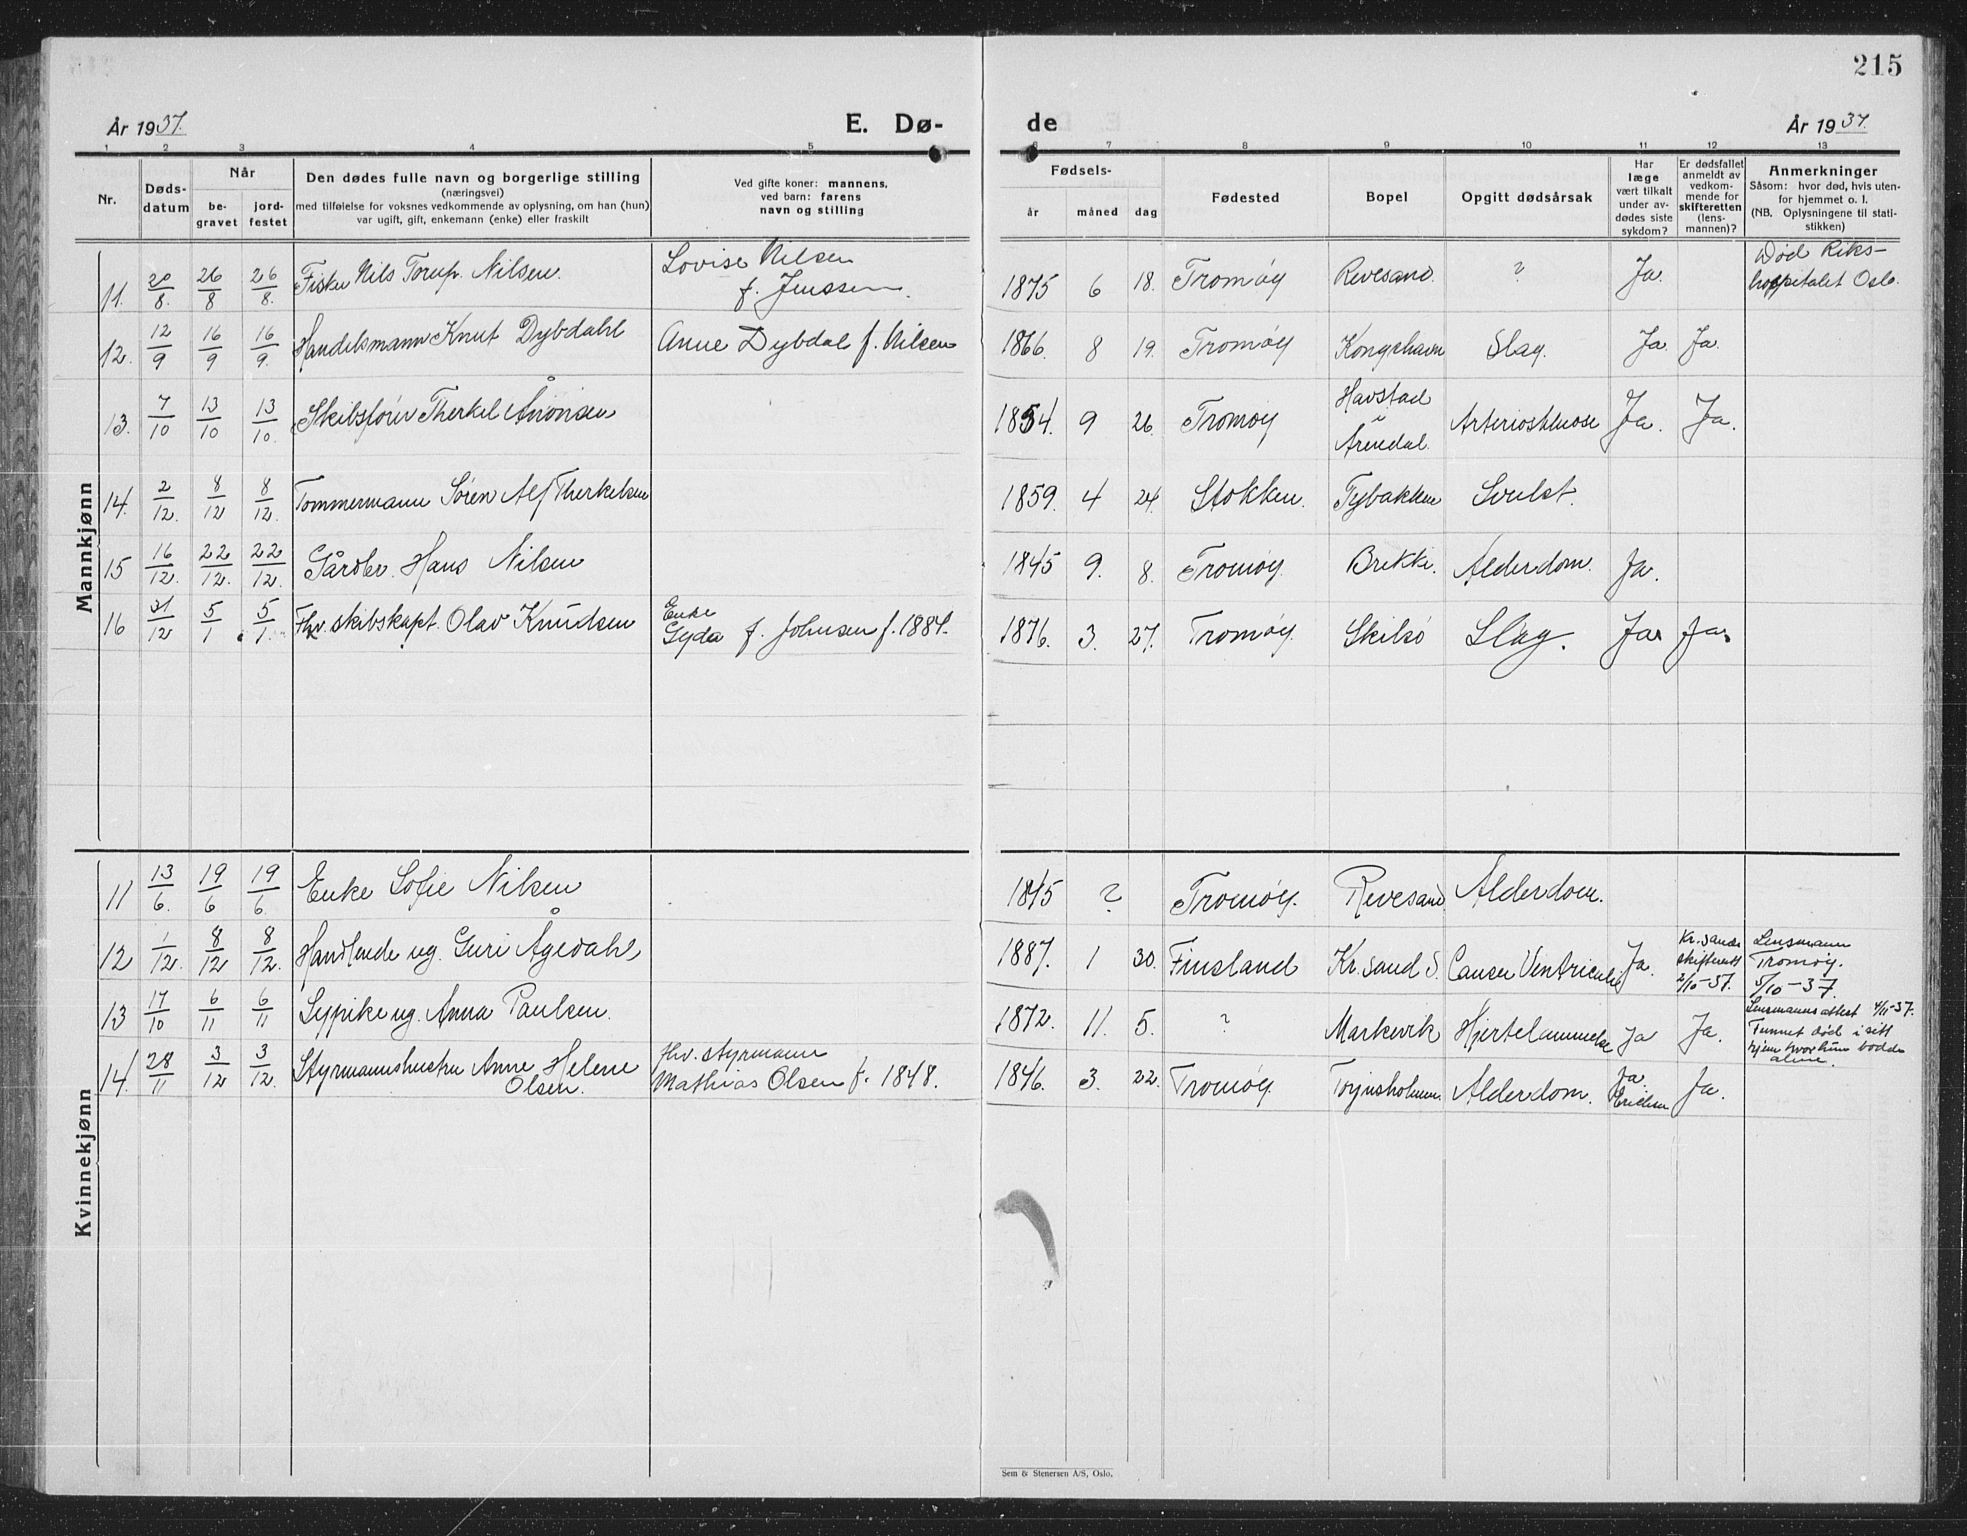 215
År 1937. E. Dø- de År 1937.
1 2 3 4 5 6 7 8 9 10 11 12 13
Nr.
Døds-
datum
Når
be-
gravet
jord-
festet
Den dødes fulle navn og borgerlige stilling
(næringsvei)
med tilføielse for voksnes vedkommende av oplysning, om han (hun)
var ugift, gift, enkemann (enke) eller fraskilt
Ved gifte koner: mannens,
ved barn: farens
navn og stilling
Fødsels-
år måned dag
Fødested
Bopel
Opgitt dødsårsak
Har
læge
vært tilkalt
under av-
dødes siste
sykdom?
Er dødsfallet
anmeldt av
vedkom-
mende for
skifteretten
(lens-
mannen)?
Anmerkninger
Såsom: hvor død, hvis uten-
for hjemmet o. l.
(NB. Oplysningene til stati-
stikken)
Mannkjønn
11. 20/8. 26/8 26/8. Fisker Nils Torup Nilsen. Lovise Nilsen f. Jenssen. 1875 6 18. Tromøy Revesand. ? Ja. Død Riks-
hospitalet Oslo.
12. 12/9 16/9 16/9. Handelsmann Knut Dybdahl Anne Dybdal f. Nilsen 1866. 8 19. Tromøy Kongshavn Slag. Ja Ja.
13. 7/10 13/10 13/10. Skibsfører Therkel Ånonsen 1854. 9 26. Tromøy Havstad
Arendal. Ja. Ja.
14. 2/12. 8/12 8/12. Tømmermann Søren Alf Therkelsen 1859. 4 24. Stokken. Tybakken Svulst.
15 16/12. 22/12. 22/12. Gårdbr. Hans Nilsen 1845 9. 8. Tromøy. Brekke. Alderdom. Ja.
16 31/12 5/1 5/1. Fhv. skibskapt. Olav Knudsen Enke
Gyda f. Johnsen f. 1884. 1876. 3. 27. Tromøy. Skilsø Slag. Ja Ja.
Kvinnekjønn
11 13/6. 19/6 19/6. Enke Sofie Nilsen 1845 ? Tromøy. Revesand Alderdom.
12 1/12. 8/12 8/12. Handlende ug. Guri Ågedahl 1887. 1 30. Finsland Kr.sand S. Cancer Ventriculi Ja. Kr.sands
skifterett
2/10-37. Lensmann
Tromøy.
5/10-37.
13 17/10 6/11 6/11 Sypike ug. Anna Paulsen. 1872. 11. 5. ? Markevik Hjertelammelse Ja Ja. Lensmannsattest 4/11-37.
Funnet død i sitt
hjem hvor hun bodde
alene.
14. 28/11 3/12 3/12. Styrmannshustru Anne Helene
Olsen. fhv. styrmann
Mathias Olsen f. 1848. 1846. 3. 22. Tromøy. Torjusholmen. Alderdom. Ja.
Ja.
Sem & Stenersen A/S, Oslo.